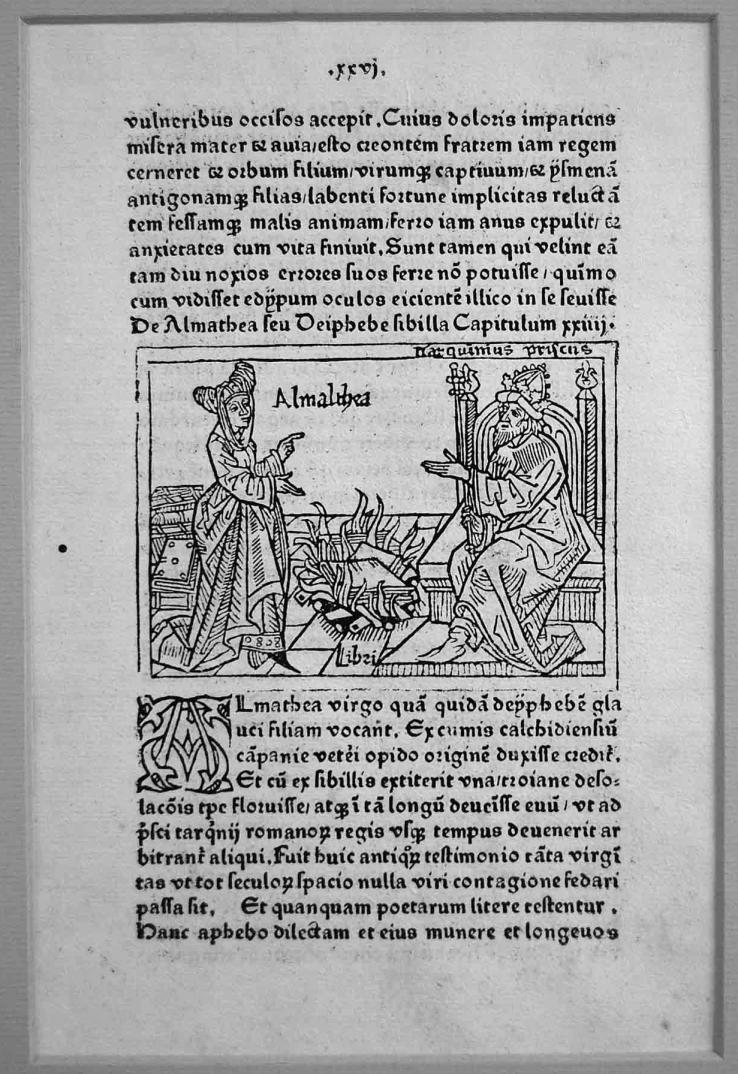 .xxvj.
vulneribus occisos accepit. Cuius doloris impatiens
misera mater & auia/esto creontem fratrem iam regem
cerneret & orbum filium/virumqꝫ captiuum/& ÿsmenā
antigonamqꝫ filias/labenti fortune implicitas reluctā
tem fessamqꝫ malis animam/ferro iam anus expulit/ &
anxietates cum vita finiuit. Sunt tamen qui velint eā
tam diu noxios errores suos ferre nō potuisse/quīmo
cum vidisset edÿpum oculos eicientē illico in se seuisse
De Almathea seu Deiphebe sibilla Capitulum xxiiij.
tarquinius priscus
Almalthea
Libri
ALmathea virgo quā quidā deÿphebē gla
uci filiam vocant. Ex cumis calchidiensiū
cāpanie veteri opido originē duxisse credit᷑.
Et cū ex sibillis extiterit vna/troiane deso⸗
lacōis tpe floruisse/atqꝫ ī tā longū deucīsse euū/vt ad
p̄sci tarq̄nij romanoꝝ regis vsqꝫ tempus deuenerit ar
bitrant᷑ aliqui. Fuit huic antiqͦꝝ testimonio tāta virgī
tas vt tot seculoꝝ spacio nulla viri contagione fedari
passa sit. Et quanquam poetarum litere testentur.
Hanc aphebo dilectam et eius munere et longeuos